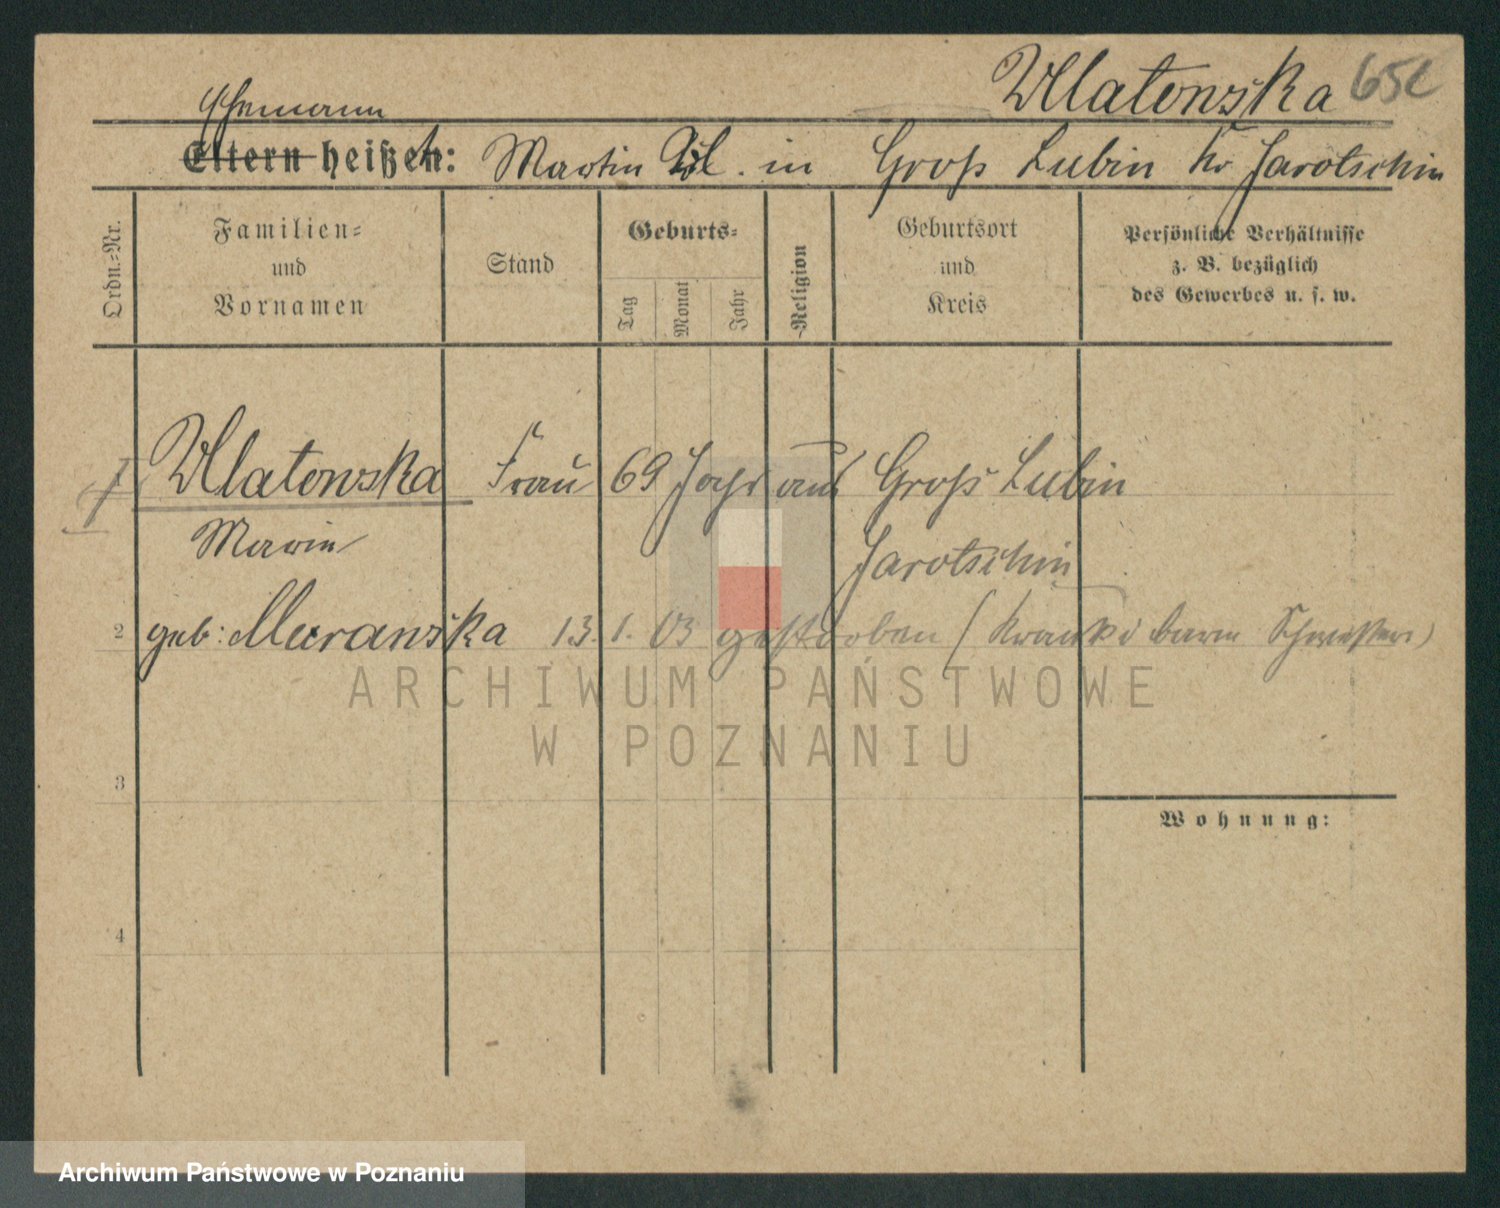 Wlatowska 65c
Ehemann
Eltern heißen: Martin Wl. in Groß Lubin Kr Jarotschin
Ordn.-Nr.
Familien-
und
Vornamen
Stand
Geburts-
Tag
Monat
Jahr
Religion
Geburtsort
und
Kreis
Persönliche Verhältnisse
z. B. bezüglich
des Gewerbes u. s. w.
1 Wlatowska Frau 69 Jahr aus Groß Lubin
Marin Jarotschin
2 geb: Muranska 13. 1. 03 gestorben (Krank. barm Schwestern)
ARCHIWUM PAŃSTWOWE
W POZNANIU
3
Wohnung:
4
Archiwum Państwowe w Poznaniu